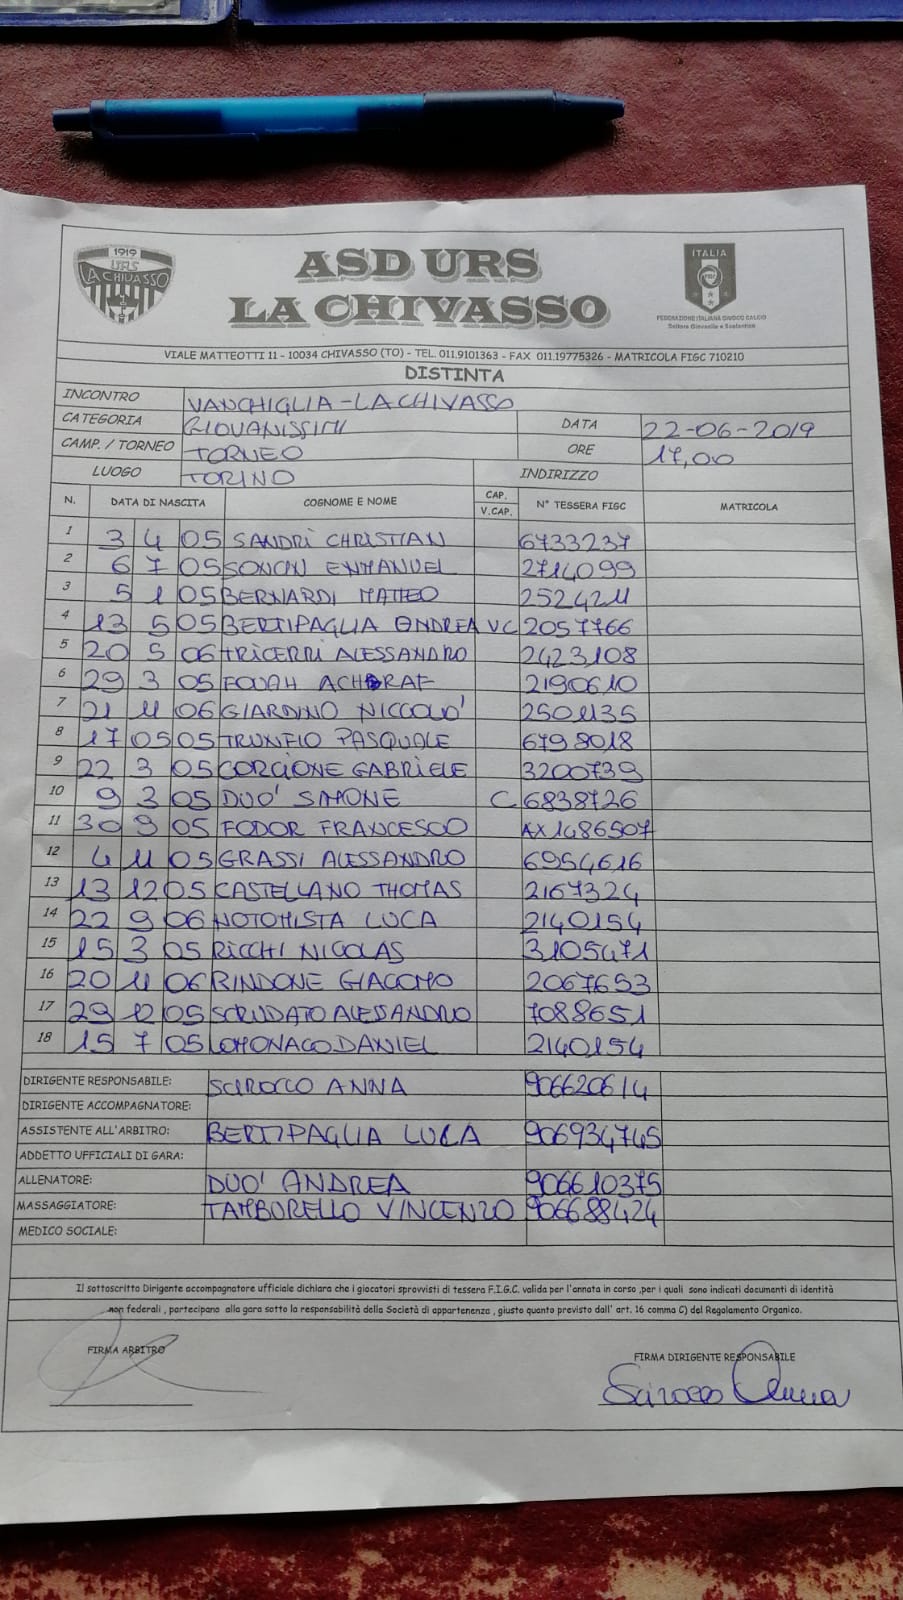 1919
URS
LA CHIVASSO
ASD URS
LA CHIVASSO
ITALIA
FIGC
FEDERAZIONE ITALIANA GIUOCO CALCIO
Settore Giovanile e Scolastico
VIALE MATTEOTTI 11 - 10034 CHIVASSO (TO) - TEL. 011.9101363 - FAX 011.19775326 - MATRICOLA FIGC 710210
DISTINTA
INCONTRO VANCHIGLIA-LACHIVASSO
CATEGORIA GIOVANISSIMI DATA 22-06-2019
CAMP. / TORNEO TORNEO ORE 17,00
LUOGO TORINO INDIRIZZO
N. DATA DI NASCITA COGNOME E NOME CAP. V.CAP. N° TESSERA FIGC MATRICOLA
1 3 4 05 SANDRI CHRISTIAN 6733237
2 6 7 05 SONCIN EMMANUEL 2714099
3 5 1 05 BERNARDI MATTEO 2524211
4 13 5 05 BERTIPAGLIA ANDREA VC 2057766
5 20 5 06 TRICERRI ALESSANDRO 2423108
6 29 3 05 FOUAH ACHRAF 2190610
7 21 11 06 GIARDINO NICCOLO' 2501135
8 17 05 05 TRUNFIO PASQUALE 6798018
9 22 3 05 CORCIONE GABRIELE 3200739
10 9 3 05 DUO' SIMONE C 6838726
11 30 9 05 FODOR FRANCESCO AX1486507
12 4 11 05 GRASSI ALESSANDRO 6954616
13 13 12 05 CASTELLANO THOMAS 2167324
14 22 9 06 NOTOMISTA LUCA 2140154
15 15 3 05 RICCHI NICOLAS 3105471
16 20 11 06 RINDONE GIACOMO 2067653
17 29 12 05 SCRUDATO ALESSANDRO 7088651
18 15 7 05 LOMONACO DANIEL 2140154
DIRIGENTE RESPONSABILE: SCIROCCO ANNA 906620614
DIRIGENTE ACCOMPAGNATORE:
ASSISTENTE ALL'ARBITRO: BERTIPAGLIA LUCA 906934745
ADDETTO UFFICIALI DI GARA:
ALLENATORE: DUO' ANDREA 906610375
MASSAGGIATORE: TAMBORELLO VINCENZO 906688424
MEDICO SOCIALE:
Il sottoscritto Dirigente accompagnatore ufficiale dichiara che i giocatori sprovvisti di tessera F.I.G.C. valida per l'annata in corso ,per i quali sono indicati documenti di identità
non federali , partecipano alla gara sotto la responsabilità della Società di appartenenza , giusto quanto previsto dall' art. 16 comma C) del Regolamento Organico.
FIRMA ARBITRO FIRMA DIRIGENTE RESPONSABILE
Scirocco Anna